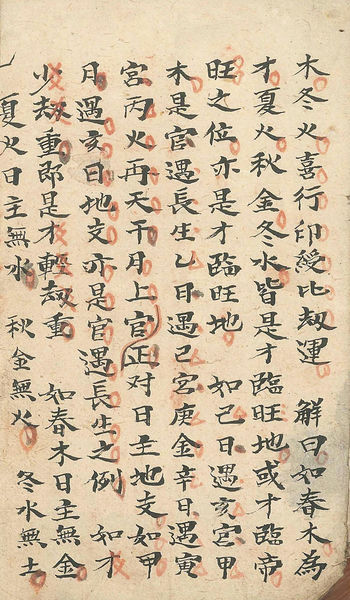 木冬火喜行印綬比劫運 解曰如春木為
才夏火秋金冬水皆是才臨旺地或才臨帝
旺之位亦是才臨旺地 如己日遇亥宮甲
木是官遇長生乙日遇己宮庚金辛日遇寅
宮丙火再天干月上官正对日主地支如甲
月遇亥日地支亦是官遇長生之例 如才
少劫重即是才輕劫重 如春木日主無金
夏火日主無水 秋金無火 冬水無土